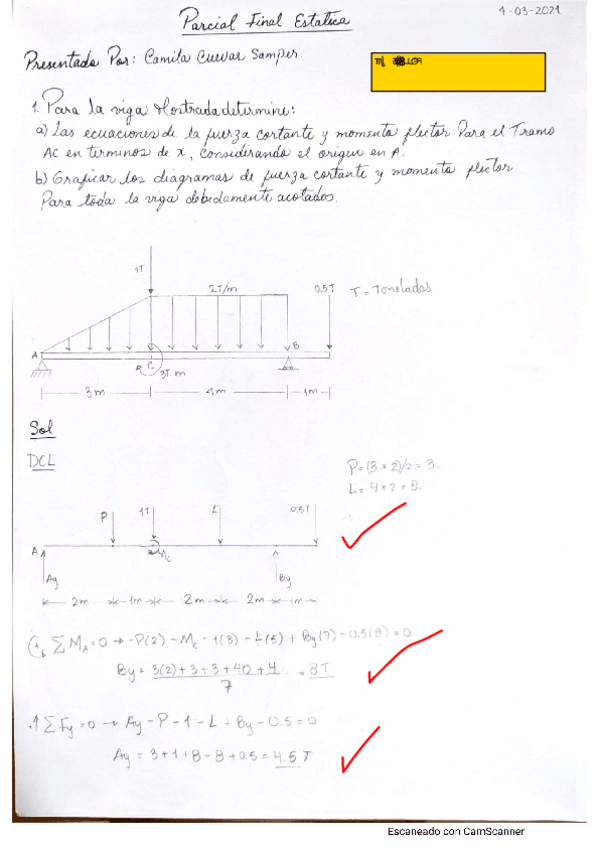 Parcial Final Estática
4-03-2021
Presentado Por: Camila Cuevas Samper.
1. Para la viga Mostrada determine:
a) Las ecuaciones de la fuerza cortante y momento flector Para el Tramo
AC en terminos de x, considerando el origen en A.
b) Graficar los diagramas de fuerza cortante y momento flector
Para toda la viga debidamente acotados.
1T
2T/m
0.5T
T = Toneladas
A
C
B
3T.m
3m
4m
1m
Sol
DCL
P=(3×2)/2=3.
L=4×2=8.
P
1T
L
0.5T
A
Mc
Ay
By
2m
1m
2m
2m
1m
∑MA=0 → -P(2) - Mc - 1(3) - L(5) + By(7) - 0.5(8) = 0
By = 3(2)+3+3+40+4 = 8T
7
∑Fy=0 → Ay - P - 1 - L + By - 0.5 = 0
Ay = 3+1+8-8+0.5 = 4.5 T
Escaneado con CamScanner